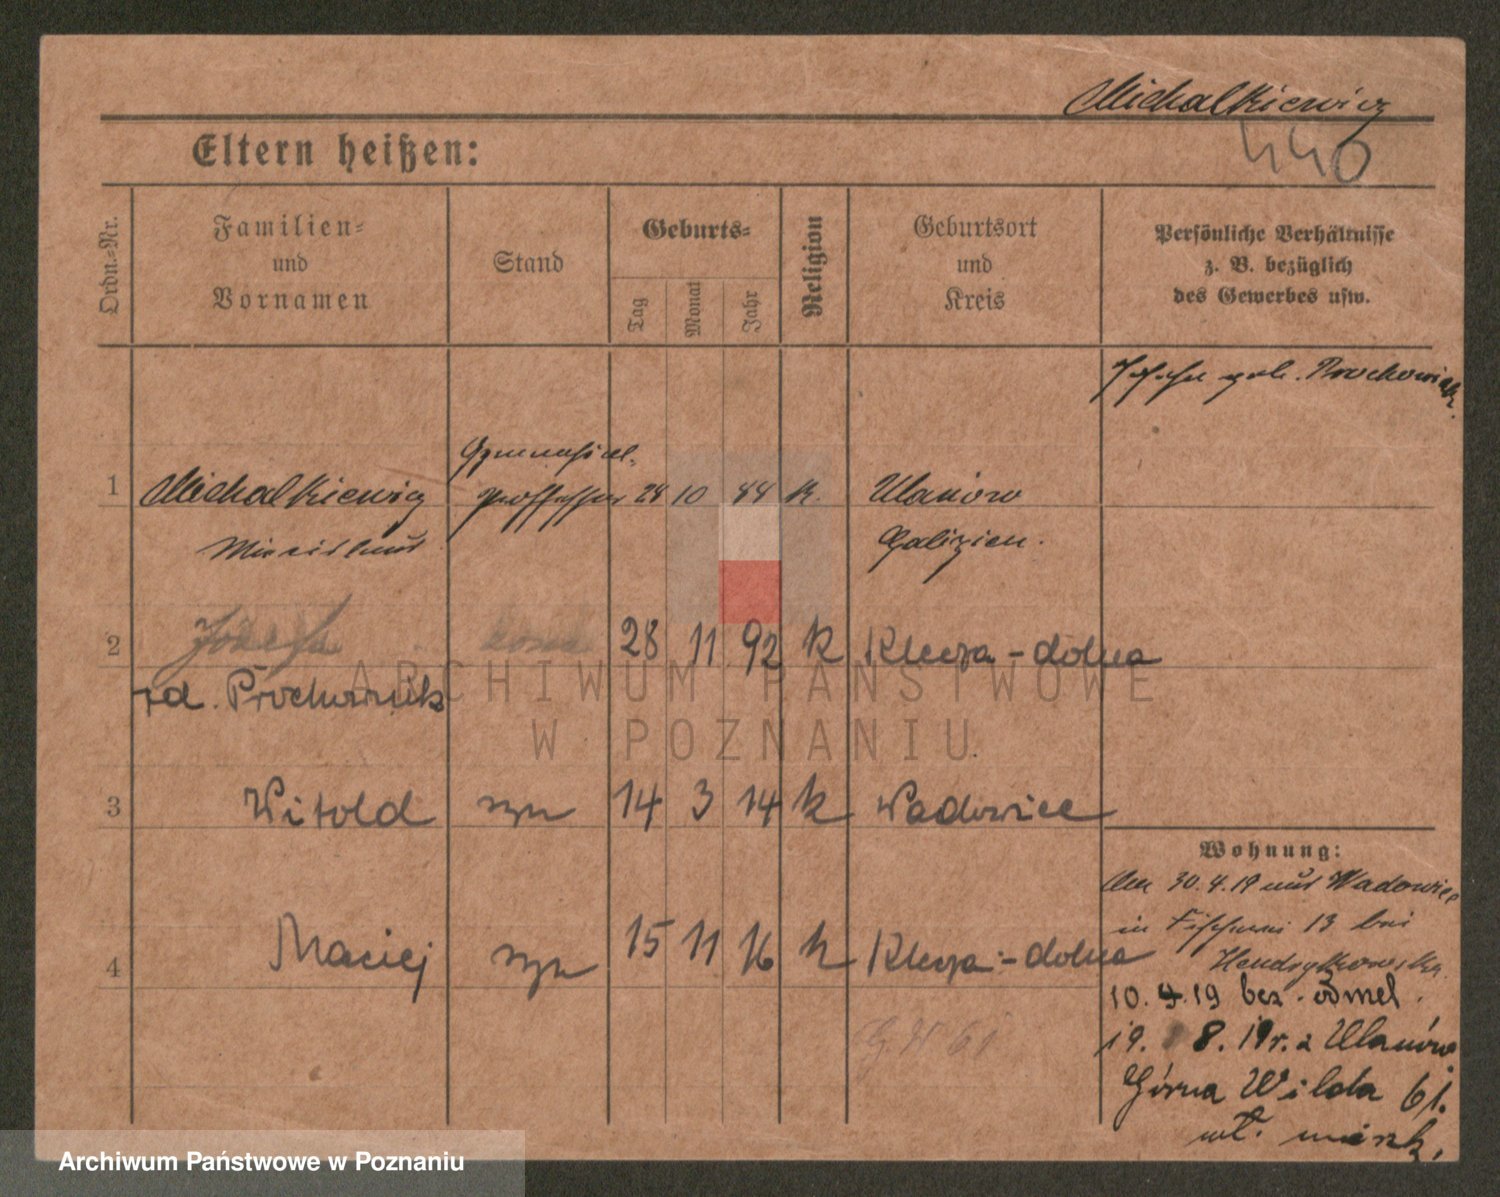 Michalkiewicz
440
Eltern heißen:
Ordn.-Nr.
Familien-
und
Vornamen
Stand
Geburts-
Tag
Monat
Jahr
Religion
Geburtsort
und
Kreis
Persönliche Verhältnisse
z. B. bezüglich
des Gewerbes usw.
Josefa geb. Prochowniak.
Gymnasial-
1 Michalkiewicz professor 24 10 44 k. Ulanów
Galizien.
2 Józefa żona 28 11 92 k Klecza-dolna
zd. Prochownik
3 Witold syn 14 3 14 k Wadowice
4 Maciej syn 15 11 16 k Klecza-dolna
G. W 61
Wohnung:
Am 30.4.19 aus Wadowice
in 13 bei
10.4.19 bez. odmel.
19. 8. 19 r. z Ulanów
Górna Wilda 61.
wł. mieszk.
ARCHIWUM PAŃSTWOWE
W POZNANIU
Archiwum Państwowe w Poznaniu